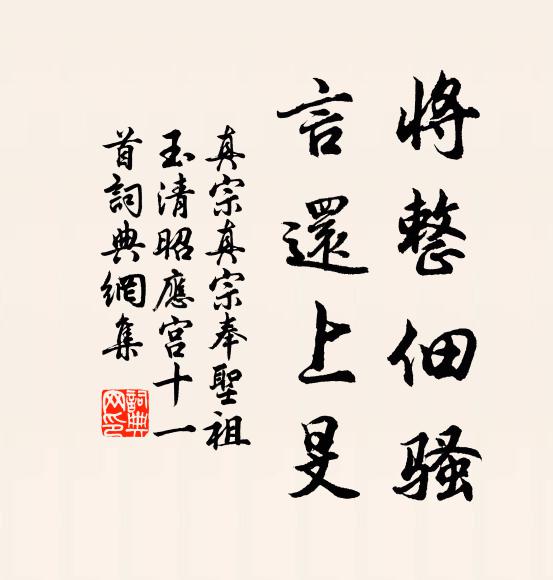 將整佃騷
言還上旻
真宗真宗奉聖祖
玉清昭應宮十一
首詞典網集
詞典网印